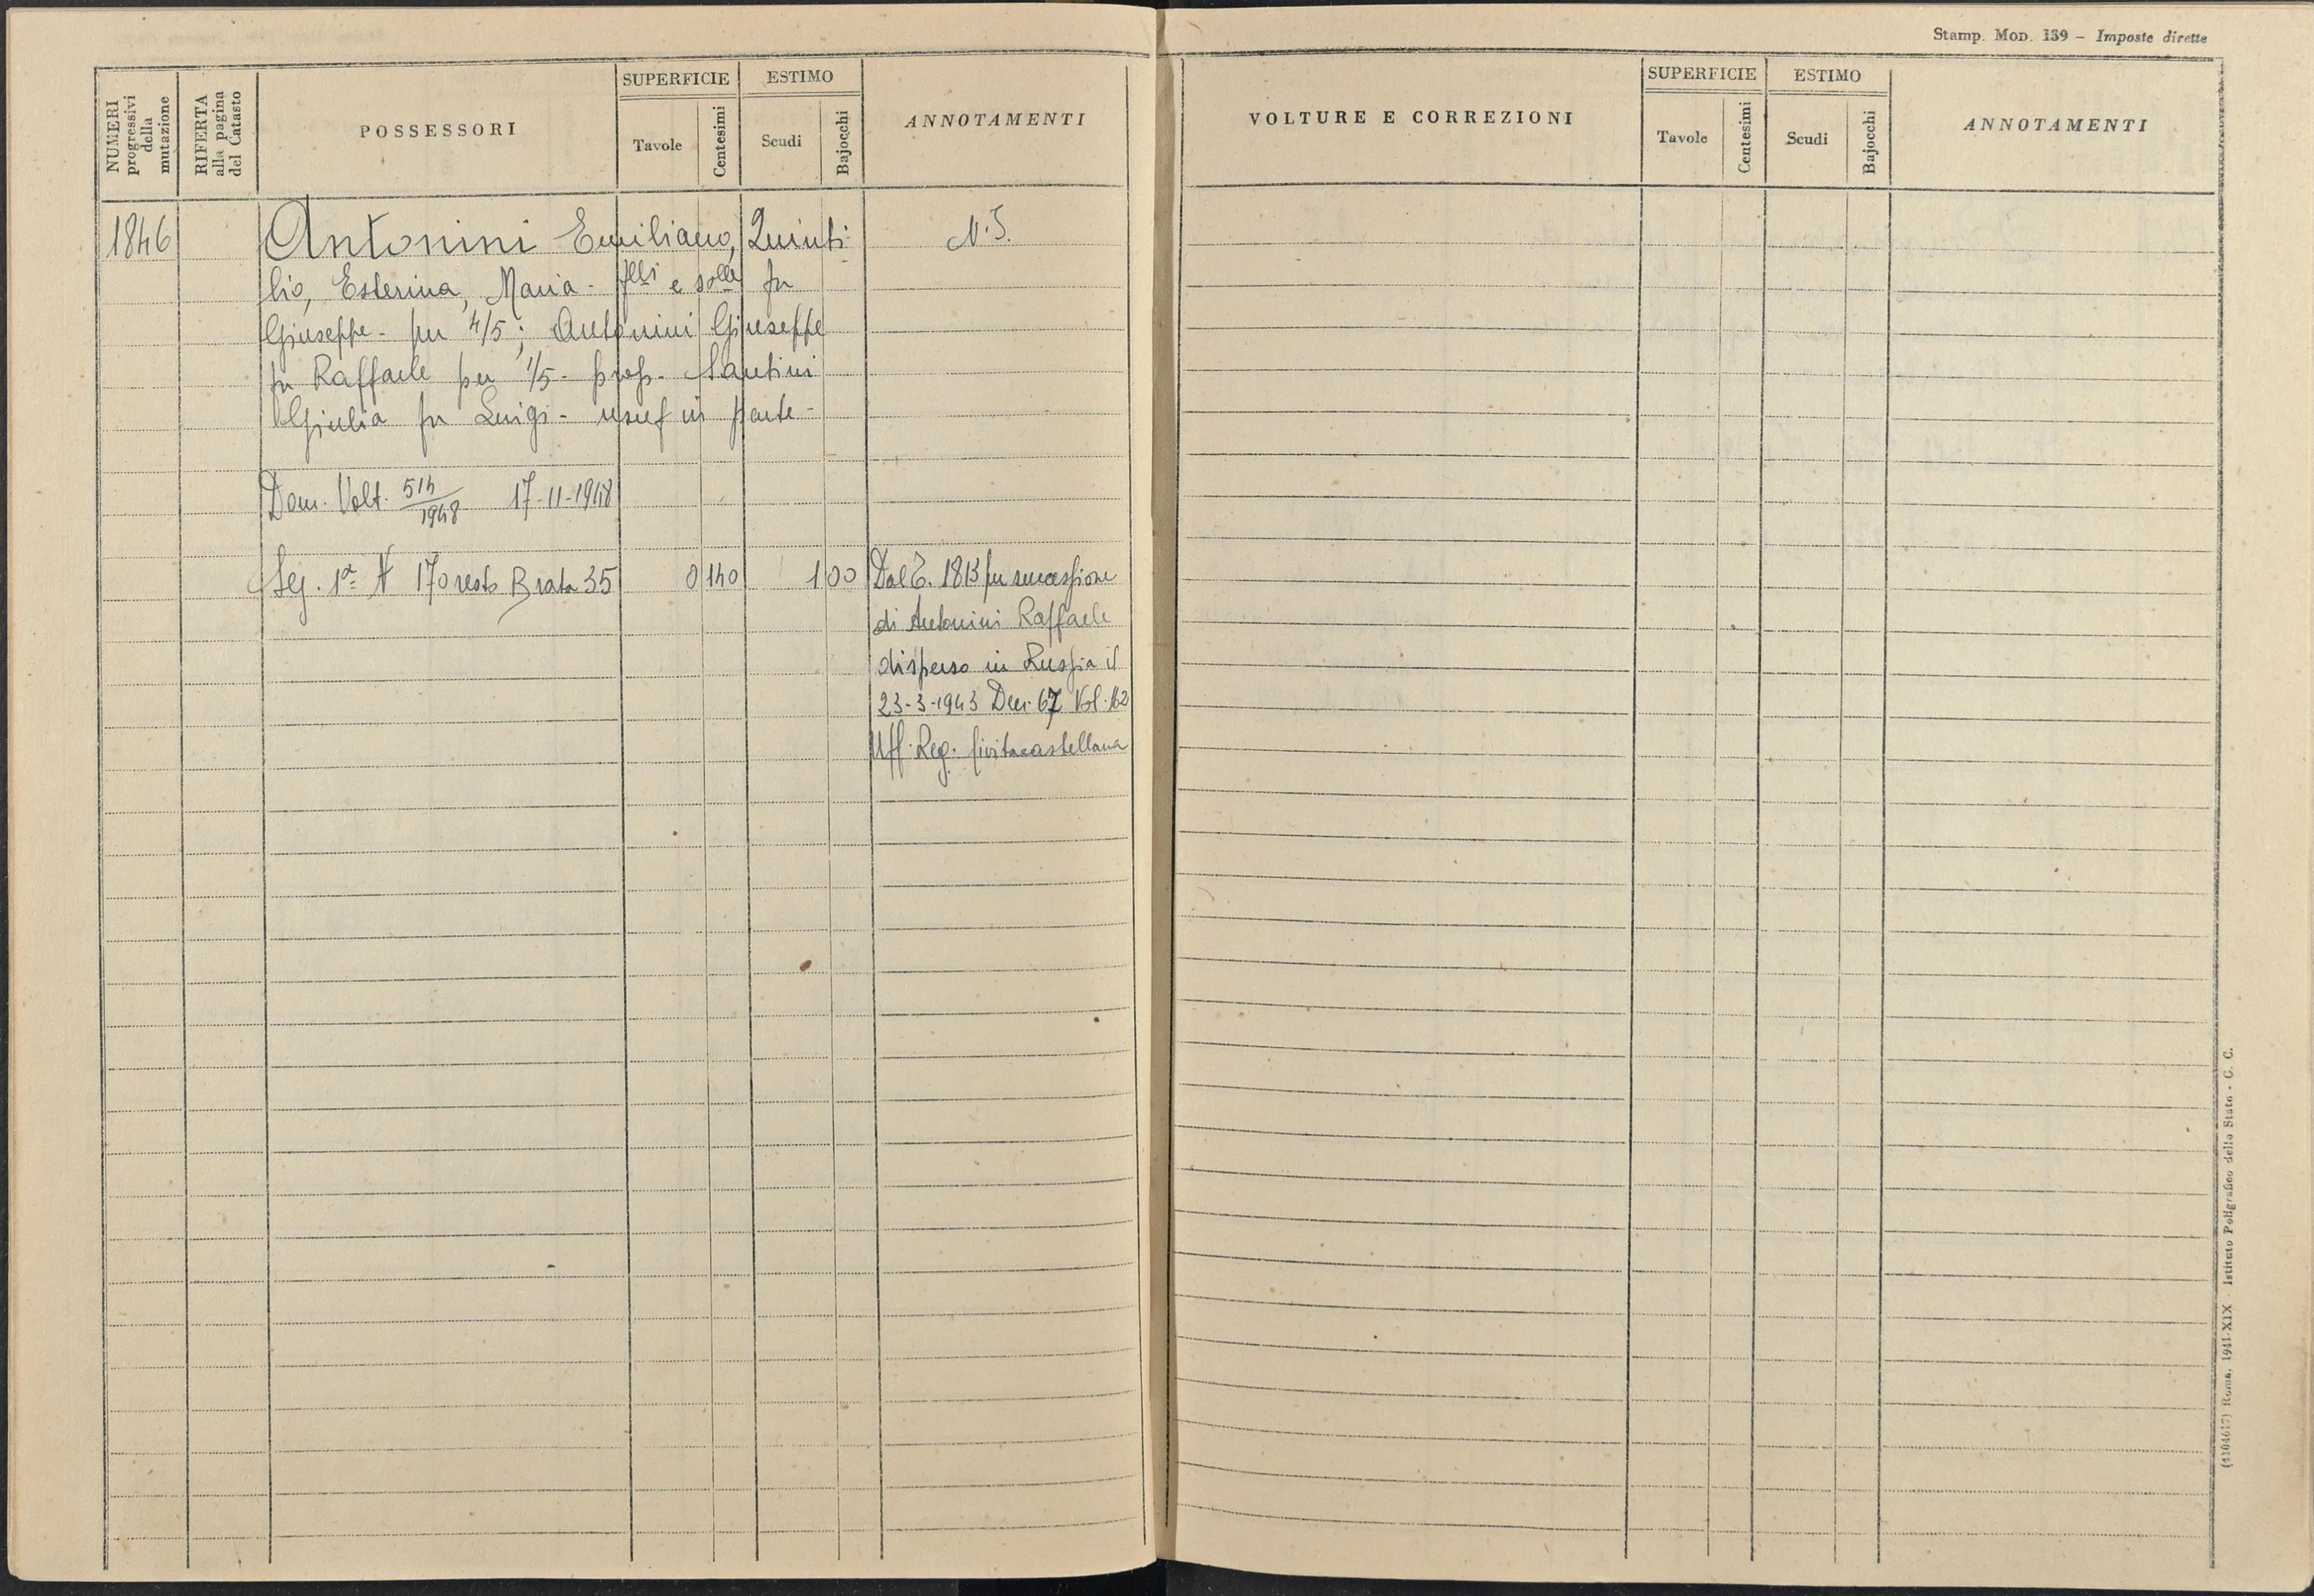 Stamp. Mod. 139 – Imposte dirette
NUMERI progressivi della mutazione
RIFERTA alla pagina del Catasto
POSSESSORI
SUPERFICIE
Tavole
Centesimi
ESTIMO
Scudi
Bajocchi
ANNOTAMENTI
1846
Antonini Emiliano, Quinti-
lio, Esterina, Maria - flli e slle fu
Giuseppe - per 4/5; Antonini Giuseppe
fu Raffaele per 1/5 - prop. Santini
Giulia fu Luigi - usuf in parte -
N.I.
Dom. Volt. 514/1948 17-11-1948
Sez. 1a N 170 resto B rata 35 0 140 1 00
Dal E. 1813 per successione
di Antonini Raffaele
disperso in Russia il
23-3-1943 Den. 67 Vol. 162
Uff. Reg. Civitacastellana
VOLTURE E CORREZIONI
SUPERFICIE
Tavole
Centesimi
ESTIMO
Scudi
Bajocchi
ANNOTAMENTI
Roma, 1941-XIX - Istituto Poligrafico dello Stato - G. C.